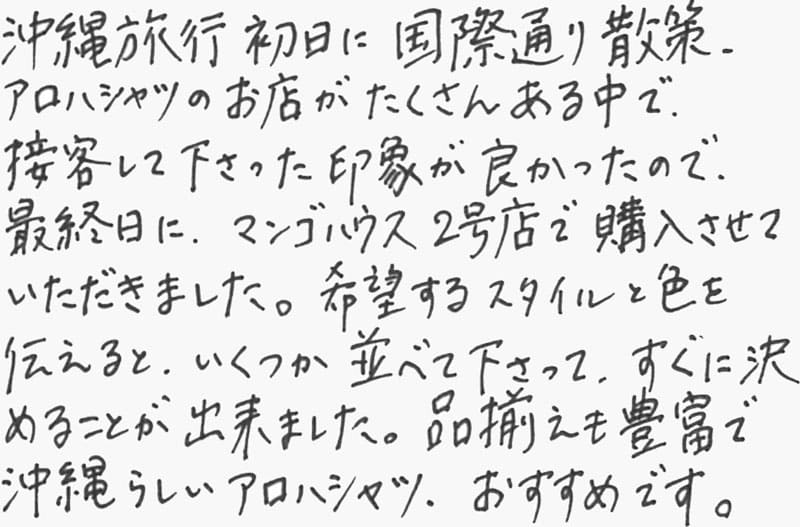 沖縄旅行 初日に 国際通り散策.
アロハシャツのお店が たくさん ある中で.
接客して下さった 印象が 良かったので.
最終日に. マンゴハウス 2号店で 購入させて
いただきました。希望する スタイルと色を
伝えると. いくつか 並べて下さって. すぐに決
めることが 出来ました。品揃えも豊富で
沖縄らしい アロハシャツ. おすすめです。